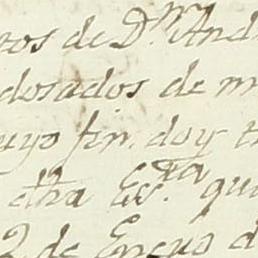 ros de D.n And
dosados de m
uyo fin. doy t
otra Es.ra que
2. de Enero d